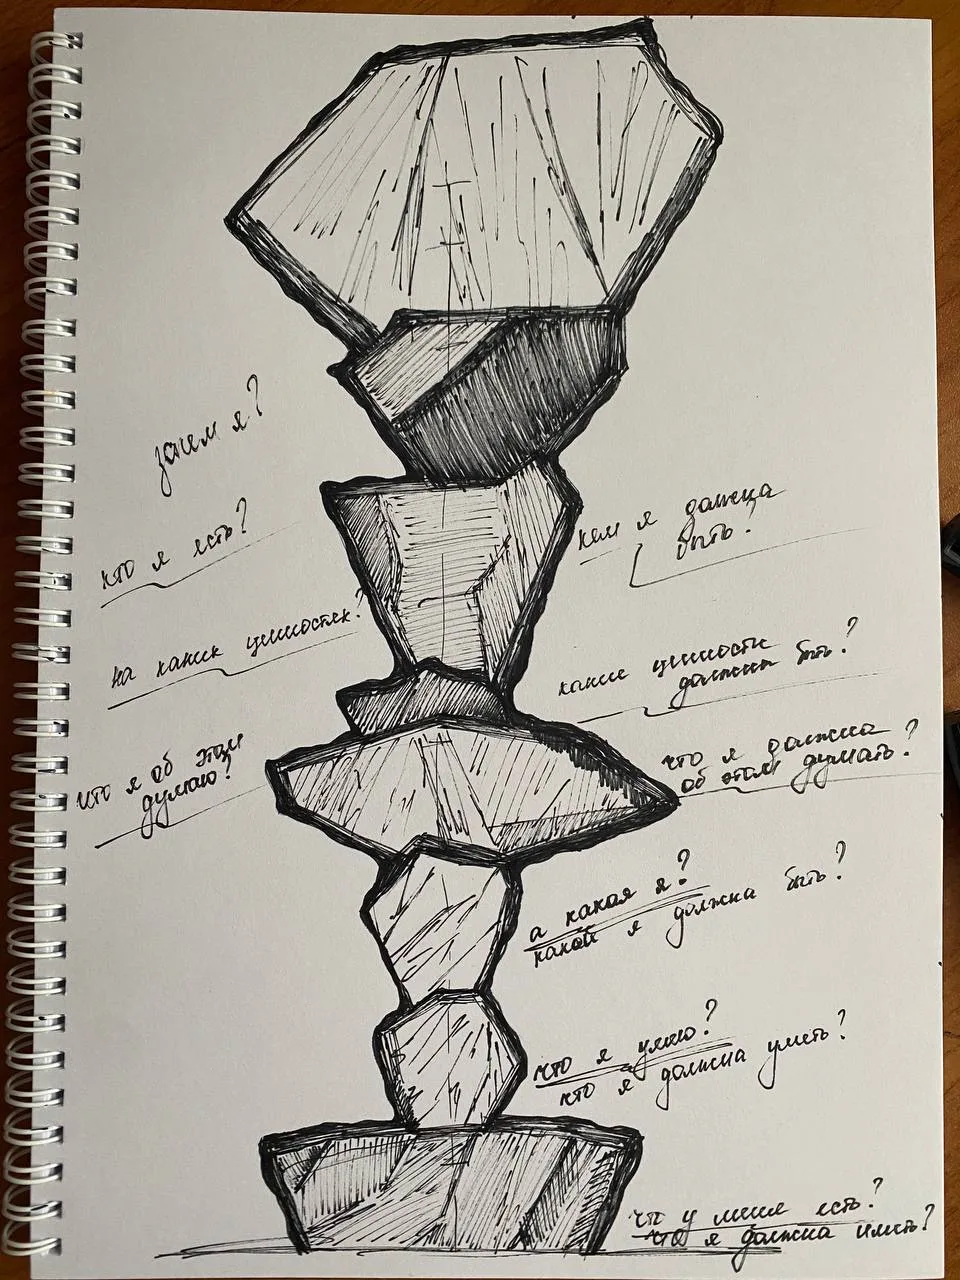 зачем я?
кто я есть?
кем я должна
быть?
на каких ценностях?
какие ценности
должны быть?
что я об этом
думаю?
что я должна
об этом думать?
а какая я?
какой я должна быть?
что я умею?
что я должна уметь?
что у меня есть?
что я должна иметь?